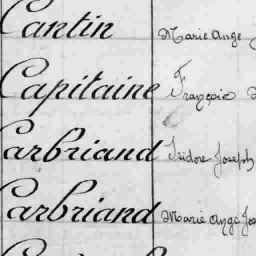 Cantin Marie Ange
Capitaine François
Carbriand Isidore Joseph
Carbriand Marie Ange